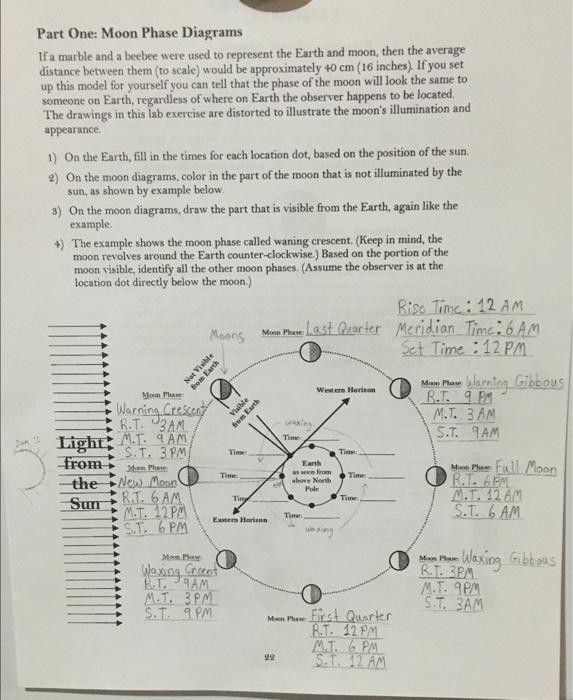 Part One: Moon Phase Diagrams
If a marble and a beebee were used to represent the Earth and moon, then the average
distance between them (to scale) would be approximately 40 cm (16 inches). If you set
up this model for yourself you can tell that the phase of the moon will look the same to
someone on Earth, regardless of where on Earth the observer happens to be located.
The drawings in this lab exercise are distorted to illustrate the moon's illumination and
appearance.
1) On the Earth, fill in the times for each location dot, based on the position of the sun.
2) On the moon diagrams, color in the part of the moon that is not illuminated by the
sun, as shown by example below.
3) On the moon diagrams, draw the part that is visible from the Earth, again like the
example.
4) The example shows the moon phase called waning crescent. (Keep in mind, the
moon revolves around the Earth counter-clockwise.) Based on the portion of the
moon visible, identify all the other moon phases. (Assume the observer is at the
location dot directly below the moon.)
Moons
Moon Phase: Last Quarter
Rise Time: 12 AM
Meridian Time: 6 AM
Set Time: 12 PM
Not Visible
from Earth
Visible
from Earth
Western Horizon
Moon Phase: Warning Gibbous
R.T. 9 PM
M.T. 3 AM
S.T. 9AM
Moon Phase:
Warning Crescent
R.T. 3AM
M.T. 9AM
S.T. 3PM
Sun
Light
from
the
Sun
Moon Phase:
New Moon
R.T. 6 AM
M.T. 12PM
S.T. 6 PM
waxing
Time:
Time:
Time:
Time:
Time:
Time:
Time:
Time:
Earth
as seen from
above North
Pole
Eastern Horizon
Moon Phase: Full Moon
R.T. 6PM
M.T. 12 AM
S.T. 6 AM
Moon Phase:
Waxing Crecent
R.T. 9AM
M.T. 3PM
S.T. 9 PM
Moon Phase: Waxing Gibbous
R.T. 3PM
M.T. 9PM
S.T. 3AM
Moon Phase: First Quarter
R.T. 12 PM
M.T. 6 PM
S.T. 12 AM
22